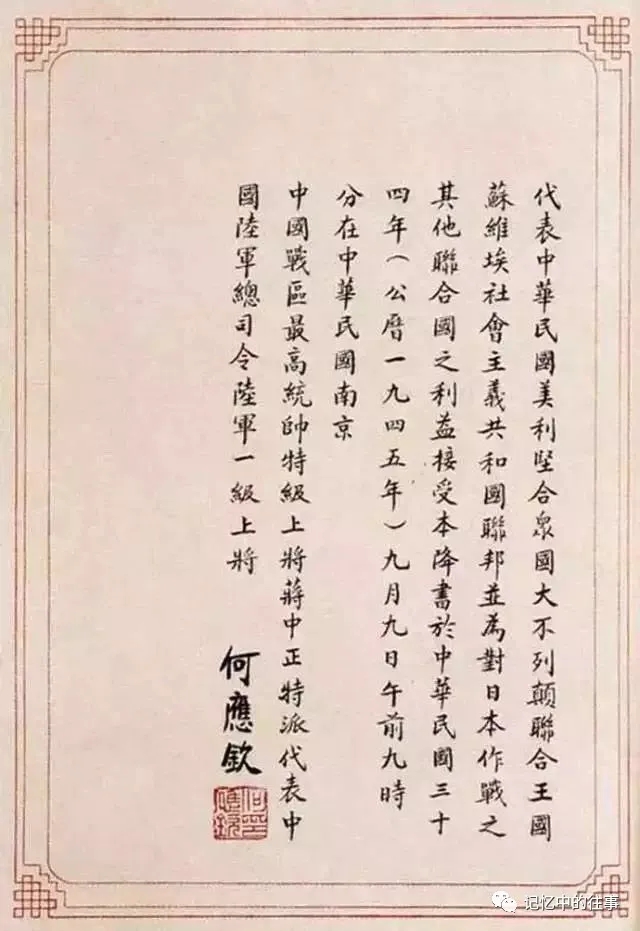 代表中華民國美利堅合衆國大不列顛聯合王國
蘇維埃社會主義共和國聯邦並為對日本作戰之
其他聯合國之利益接受本降書於中華民國三十
四年(公曆一九四五年)九月九日午前九時
分在中華民國南京
中國戰區最高統帥特級上將蔣中正特派代表中
國陸軍總司令陸軍一級上將
何應欽
何應欽
记忆中的往事